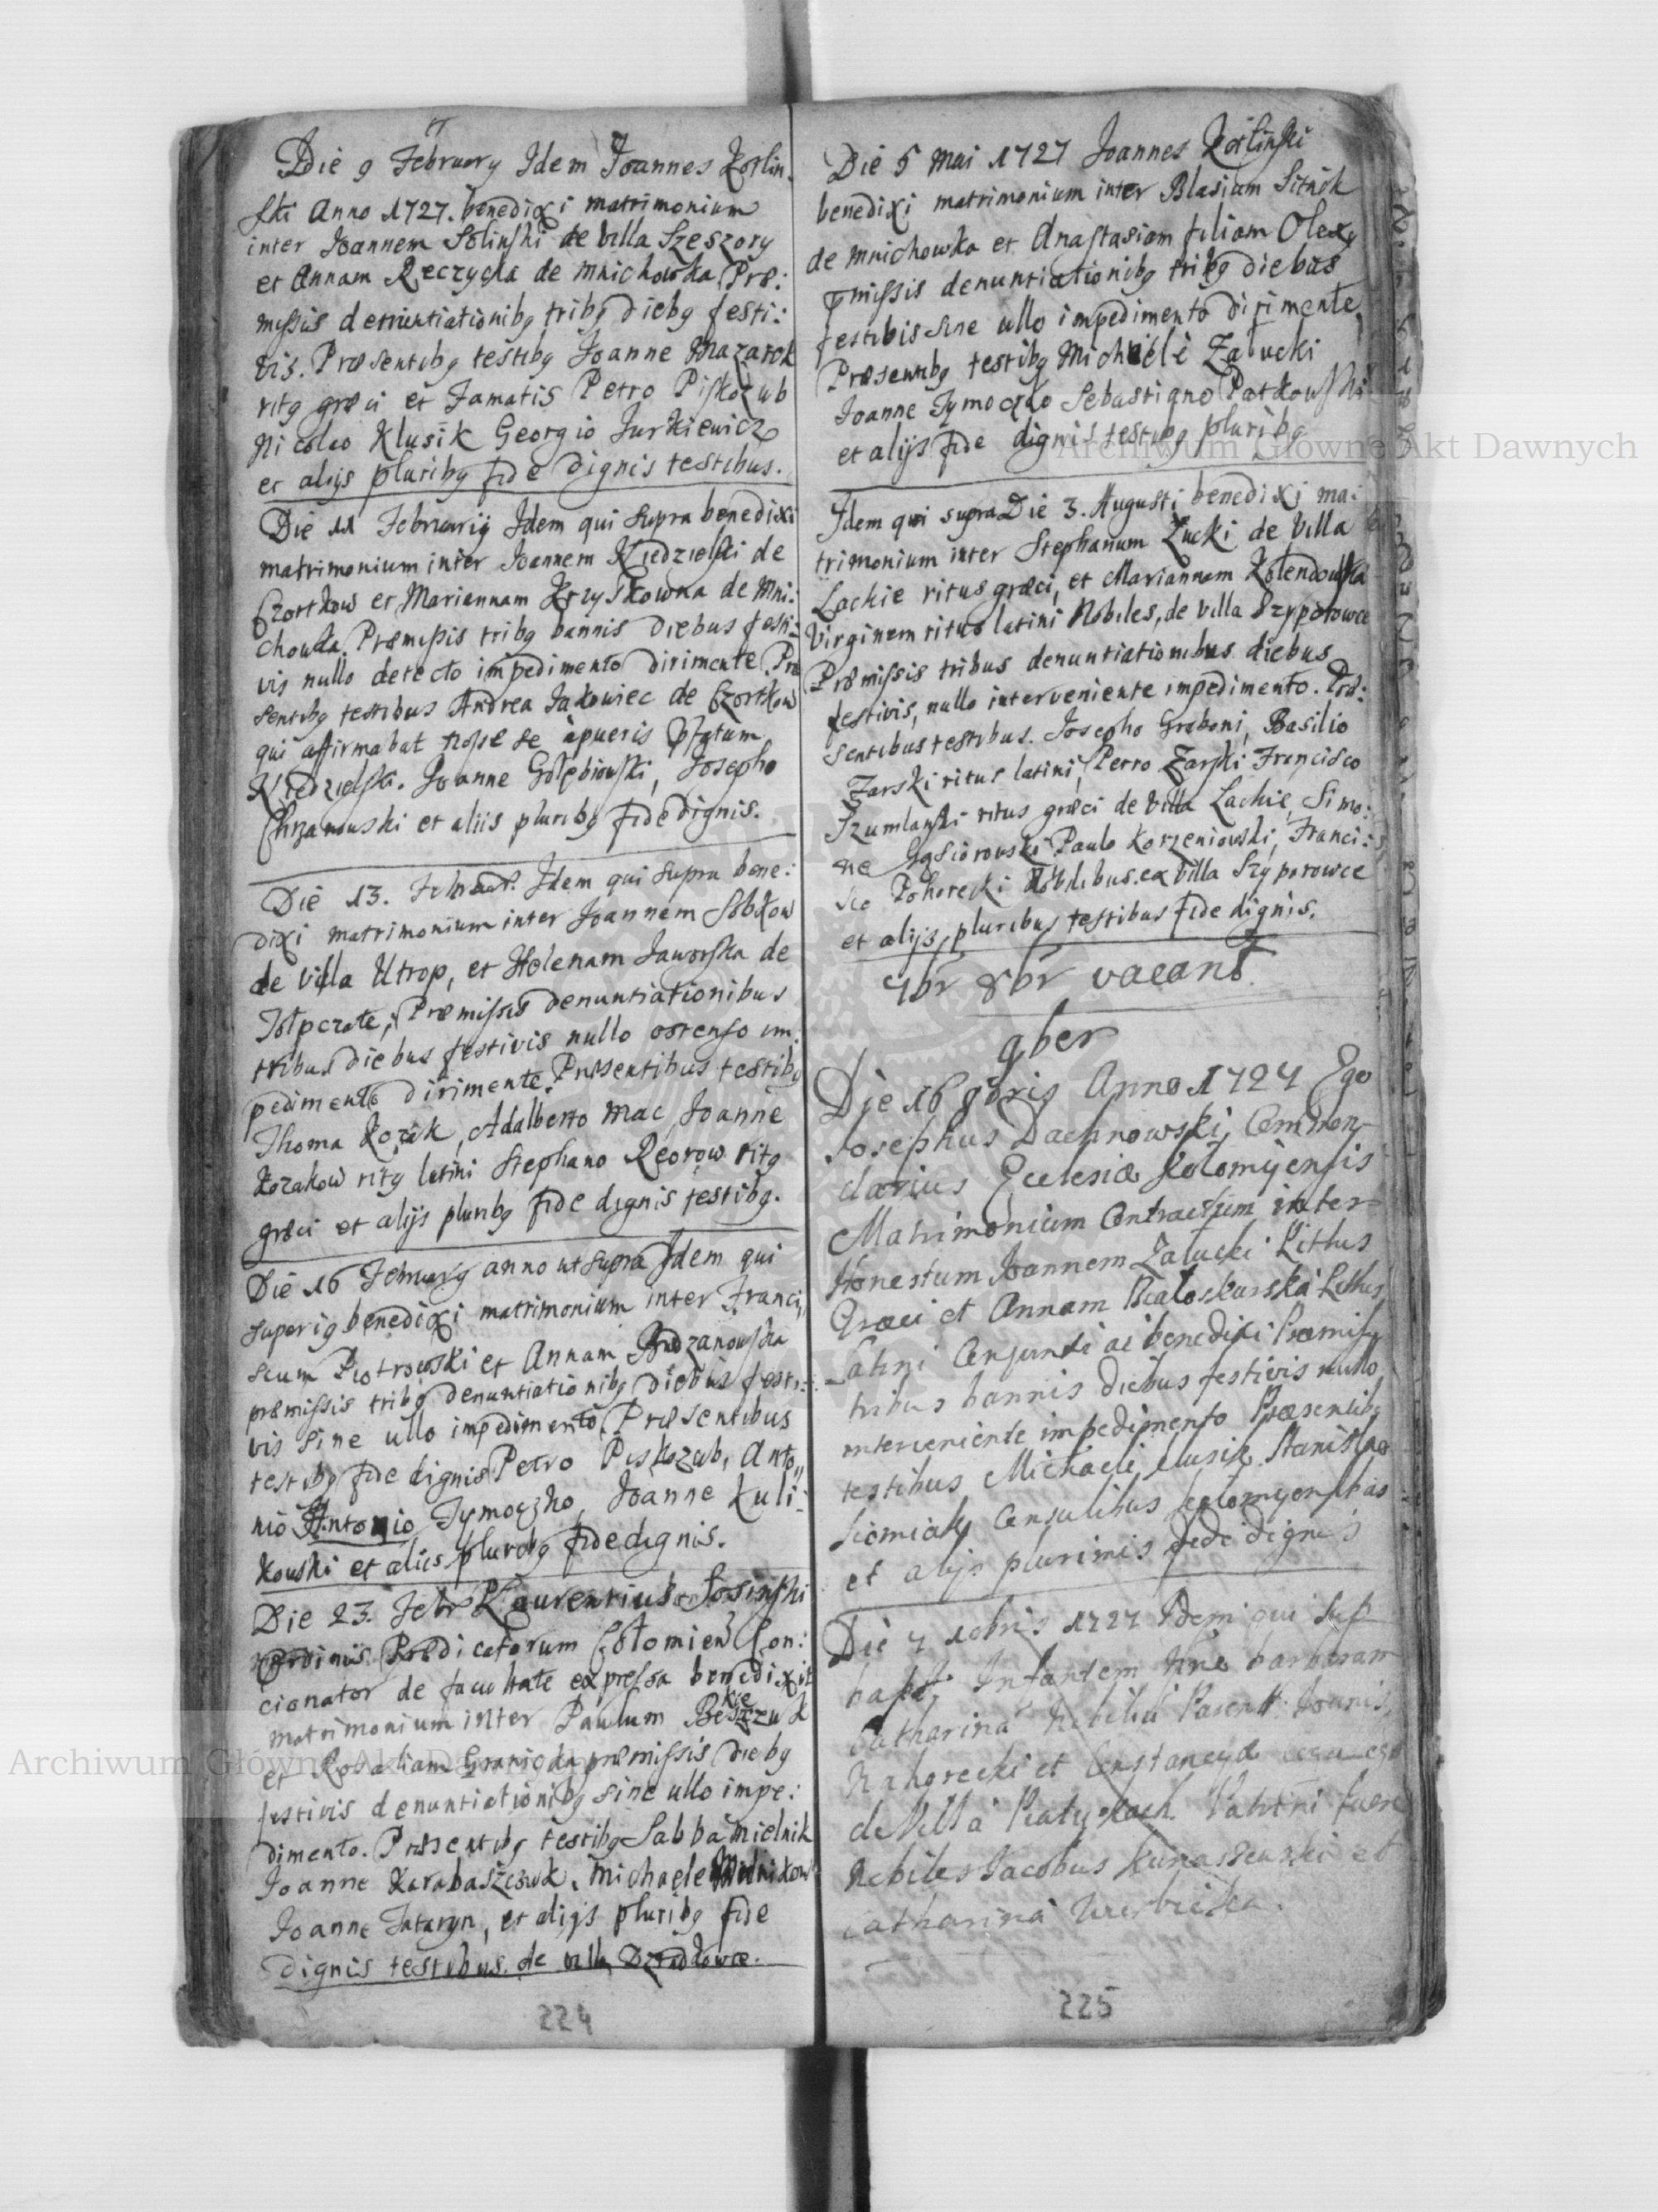 Die 9 February Idem Joannes Kozlin.
ski Anno 1727. benedixi matrimonium
inter Joannem Solinski de Villa Szeszory
et Annam Reczycka de Mnichowka Præ:
missis denuntiationibq tribq diebq festi:
vis. Præsentibq testibq Joanne Mazarok
ritq græci et Famatis Petro Piskozub
Nicolao Klusik Georgio Jurkiewicz
et aliys pluribq fide dignis testibus.
Die 11 Februarij Idem qui supra benedixi
matrimonium inter Joannem Niedzielski de
Czortkow et Mariannam Krzyskowna de Mni:
chowka. Præmissis tribq bannis diebus festi:
vis nullo detecto impedimento dirimente. Præ
sentibq testibus Andrea Jakowiec de Czortkow
qui affirmabat nosse se a pueris pfatum
Niedzielski. Joanne Gołębiowski, Josepho
Chrzanowski et aliis pluribq fide dignis.
Die 13. Idem qui supra bene:
dixi matrimonium inter Joannem Sobkow
de Villa Utrop, et Helenam Jaworska de
Præmissis denuntiationibus
tribus diebus festivis nullo ostenso im
pedimento dirimente. Præsentibus testibq
Thoma Kozak, Adalberto Mac, Joanne
Kozakow ritq latini Stephano Reorow ritq
græci et alijs pluribq fide dignis testibq.
Die 16 February anno ut supra Idem qui
superiq benedixi matrimonium inter Franci,,
scum Piotrowski et Annam
præmissis tribq denuntiationibq diebus festi:
vis sine ullo impedimento. Præsentibus
testibq fide dignis Petro Piskozub, Anto,,
nio Antonio Tymoczko, Joanne Kuli:
kowski et aliis pluribq fide dignis.
Die 23. Febr Laurentius Sosinski
Ordinis Prædicatorum Colomien Con:
cionator de facultate expressa benedixit
matrimonium inter Paulum
et Rosaliam præmissis diebq
festivis denuntiationibq sine ullo impe:
dimento. Præsentibq testibq Sabba Mielnik
Joanne Karabaszczuk, Michaele Melnikow
Joanne Tataryn, et alijs pluribq fide
dignis testibus. de villa Dziadkowce.
224
Die 5 Mai 1727 Joannes Kozlinski
benedixi matrimonium inter Blasium Sitnik
de Mnichowka et Anastasiam filiam Olexy
pmissis denuntiationibq tribq diebus
festibis sine ullo impedimento dirimente.
Præsentibq testibq Michaele Załucki
Joanne Tymoczko Sebastiano Patkowski
et alijs fide dignis testibq pluribq
Idem qui supra Die 3. Augusti benedixi ma:
trimonium inter Stephanum Zucki de Villa
Lachie ritus græci, et Mariannam Kolendowska
Virginem ritus latini Nobiles, de Villa Szyporowce
Præmissis tribus denuntiationibus diebus
festivis, nullo interveniente impedimento. Præ:
sentibus testibus. Josepho Graboni, Basilio
Zarski ritus latini, Petro Zarski Francisco
Szumlanski ritus græci de Villa Lachie, Simo:
ne Gąsiorowski Paulo Korzeniowski, Franci:
sco Pohorecki Nobilibus ex villa Szyporowce
et alijs pluribus testibus fide dignis.
7br 8br vacant.
9ber
Die 16 9bris Anno 1727 Ego
Josephus Dachnowski Commen
darius Ecclesiæ Kolomyensis
Matrimonium Contractum inter
Honestum Joannem Załucki Rithus
Græci et Annam Białoskurska Rithus
Latini Conjunxi ac benedixi Præmissis
tribus bannis diebus festivis nullo
interveniente impedimento Præsentibq
testibus Michaele Klusik Stanislao
Siemiak Consulibus Kolomyensibus
et alijs plurimis fide dignis
Die 7 10bris 1727 Idem qui sup
bapt Infantem Nne barbaram
Catharina Nobiliu Parent Joannis
Nahorecki et Constancya
de Villa Piatyhach Patrini fuere
Nobiles Jacobus et
Catharina Wierbicka.
225
Archiwum Główne Akt Dawnych
Archiwum Główne Akt Dawnych